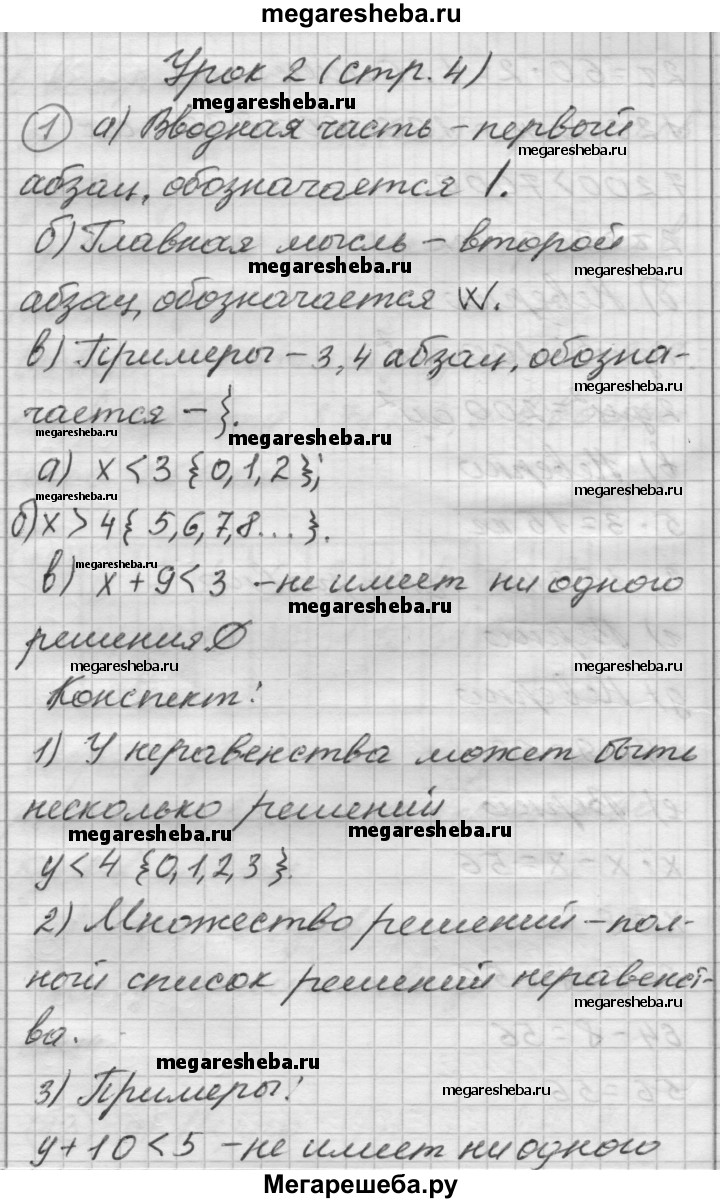 megaresheba.ru
Урок 2 (стр. 4)
megaresheba.ru
1 а) Вводная часть – первый
megaresheba.ru
абзац, обозначается /.
б) Главная мысль – второй
megaresheba.ru
megaresheba.ru
абзац, обозначается W.
в) Примеры – 3, 4 абзац, обозна-
megaresheba.ru
чается – }.
megaresheba.ru
megaresheba.ru
а) x < 3 {0, 1, 2};
megaresheba.ru
megaresheba.ru
б) x > 4 { 5, 6, 7, 8... }.
megaresheba.ru
в) x + 9 < 3 – не имеет ни одного
megaresheba.ru
решения Ø
megaresheba.ru
megaresheba.ru
Конспект:
1) У неравенства может быть
несколько решений
megaresheba.ru
megaresheba.ru
y < 4 {0, 1, 2, 3 }.
2) Множество решений – пол-
ный список решений неравенст-
megaresheba.ru
ва.
megaresheba.ru
3) Примеры:
megaresheba.ru
y + 10 < 5 – не имеет ни одного
Мегарешеба.ру